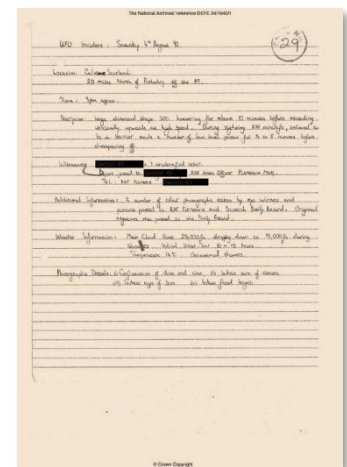 The National Archives' reference DEFE 24/1940/1
29
UFO Incident : Saturday 4th August 90
Location: Calvine Scotland.
20 miles North of Pitlochry off the A9.
Time: 9pm approx.
Description: Large diamond shape UFO hovering for about 10 minutes before ascending
vertically upwards at high speed. During sighting RAF aircraft, believed to
be a Harrier made a number of low level passes for 5 to 6 minutes before
disappearing off.
Witnesses: + 1 unidentified other.
passed to RAF Press Officer Pitreavie Maq.
Tel: RAF Pitreavie
Additional Information: A number of colour photographs taken by eye witness and
pictures passed to RAF Pitreavie and Scottish Daily Record. Original
negatives also passed to the Daily Record.
Weather Information: Main Cloud Base 25,000ft dropping down to 15,000ft during
Wind West 10 to 15 knots.
Temperature 14°C Occasional showers.
Photographic Details: i) Confirmation of date and time ii) make of camera
iii) type of lens iv) focal length
© Crown Copyright